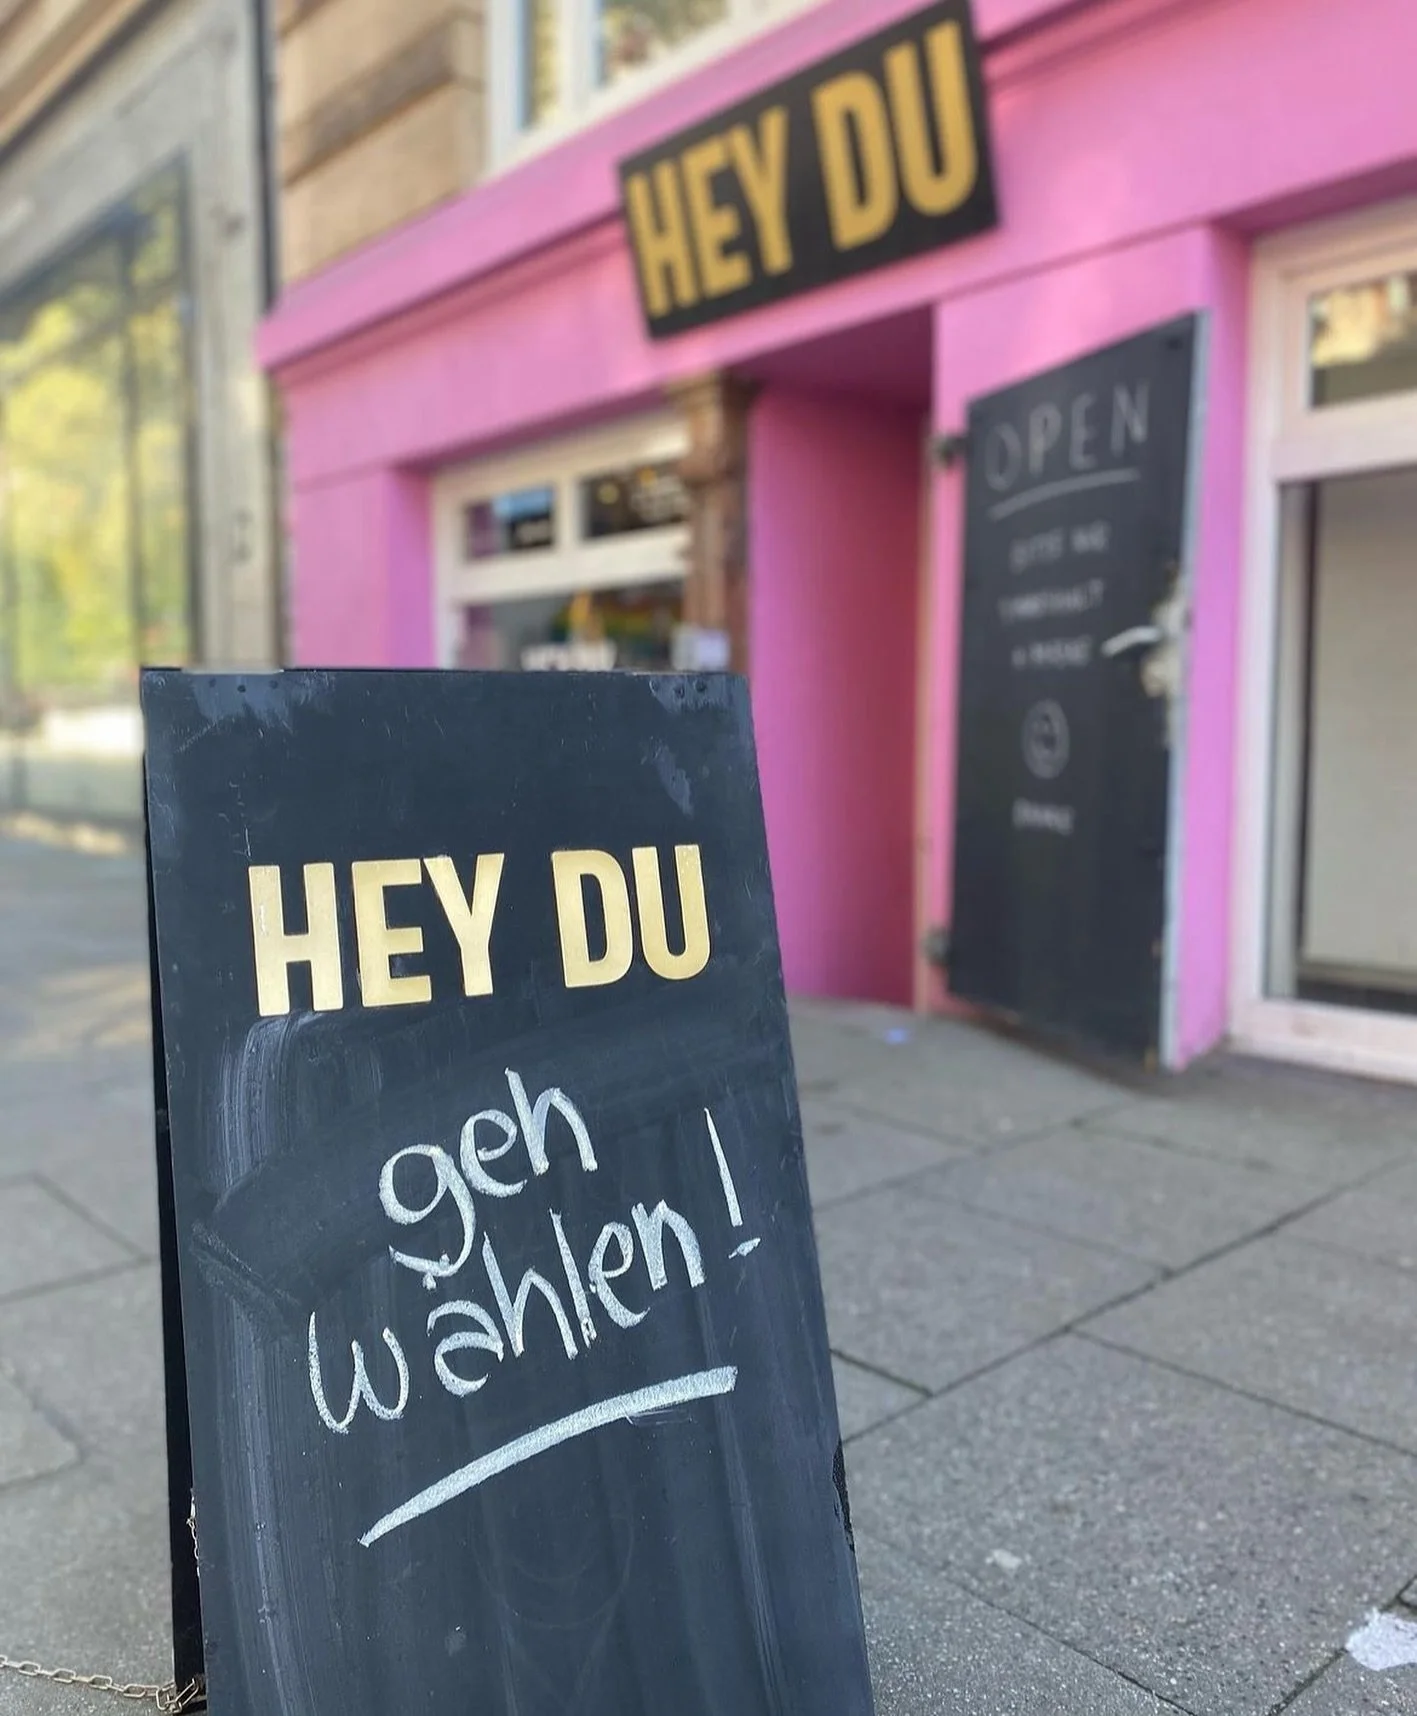 HEY DU
OPEN
HEY DU
geh
wählen!